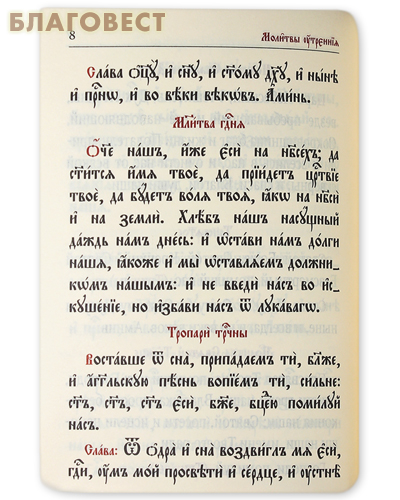 БЛАГОВЕСТ
8 Моли̑твы ᲂу҆́тренниѧ
Сла́ва ѻ҆ц҃ꙋ̀, и҆ сн҃ꙋ, и҆ ст҃о́мꙋ дх҃ꙋ, и҆ ны́нѣ
и҆ при́снѡ, и҆ во вѣ́ки вѣкѡ́въ. А҆ми́нь.
Мл҃и́тва гдⷭ҇нѧ
Ѻ҆́ч҃е на́шъ, и҆́же є҆сѝ на нб҃сѣ́хъ; да
ст҃и́тсѧ и҆́мѧ твоѐ, да прїи́детъ црⷭ҇твїе
твоѐ, да бꙋ́детъ во́лѧ твоѧ̀, ꙗ҆́кѡ на нб҃сѝ
и҆ на землѝ. Хлѣ́бъ на́шъ насꙋ́щный
да́ждь на́мъ дне́сь: и҆ ѡ҆ста́ви на́мъ до́лги
на́шѧ, ꙗ҆́коже и҆ мы̀ ѡ҆ставлѧ́емъ должни-
кѡ́мъ на́шымъ: и҆ не введѝ на́съ во и҆с-
кꙋше́нїе, но и҆зба́ви на́съ ѿ лꙋка́вагѡ.
Тропарѝ трⷪ҇чны
Воста́вше ѿ сна̀, припа́даемъ тѝ, бл҃же,
и҆ а҆́гг҃льскꙋю пѣ́снь вопїе́мъ тѝ, си́льне:
ст҃ъ, ст҃ъ, ст҃ъ є҆сѝ, бж҃е, бцⷣею поми́лꙋй
на́съ.
Сла́ва: Ѿ ѻ҆дра̀ и҆ сна̀ воздви́глъ мѧ̀ є҆сѝ,
гдⷭ҇и, ᲂу҆́мъ мо́й просвѣтѝ и҆ се́рдце, и҆ ᲂу҆стнѣ̀